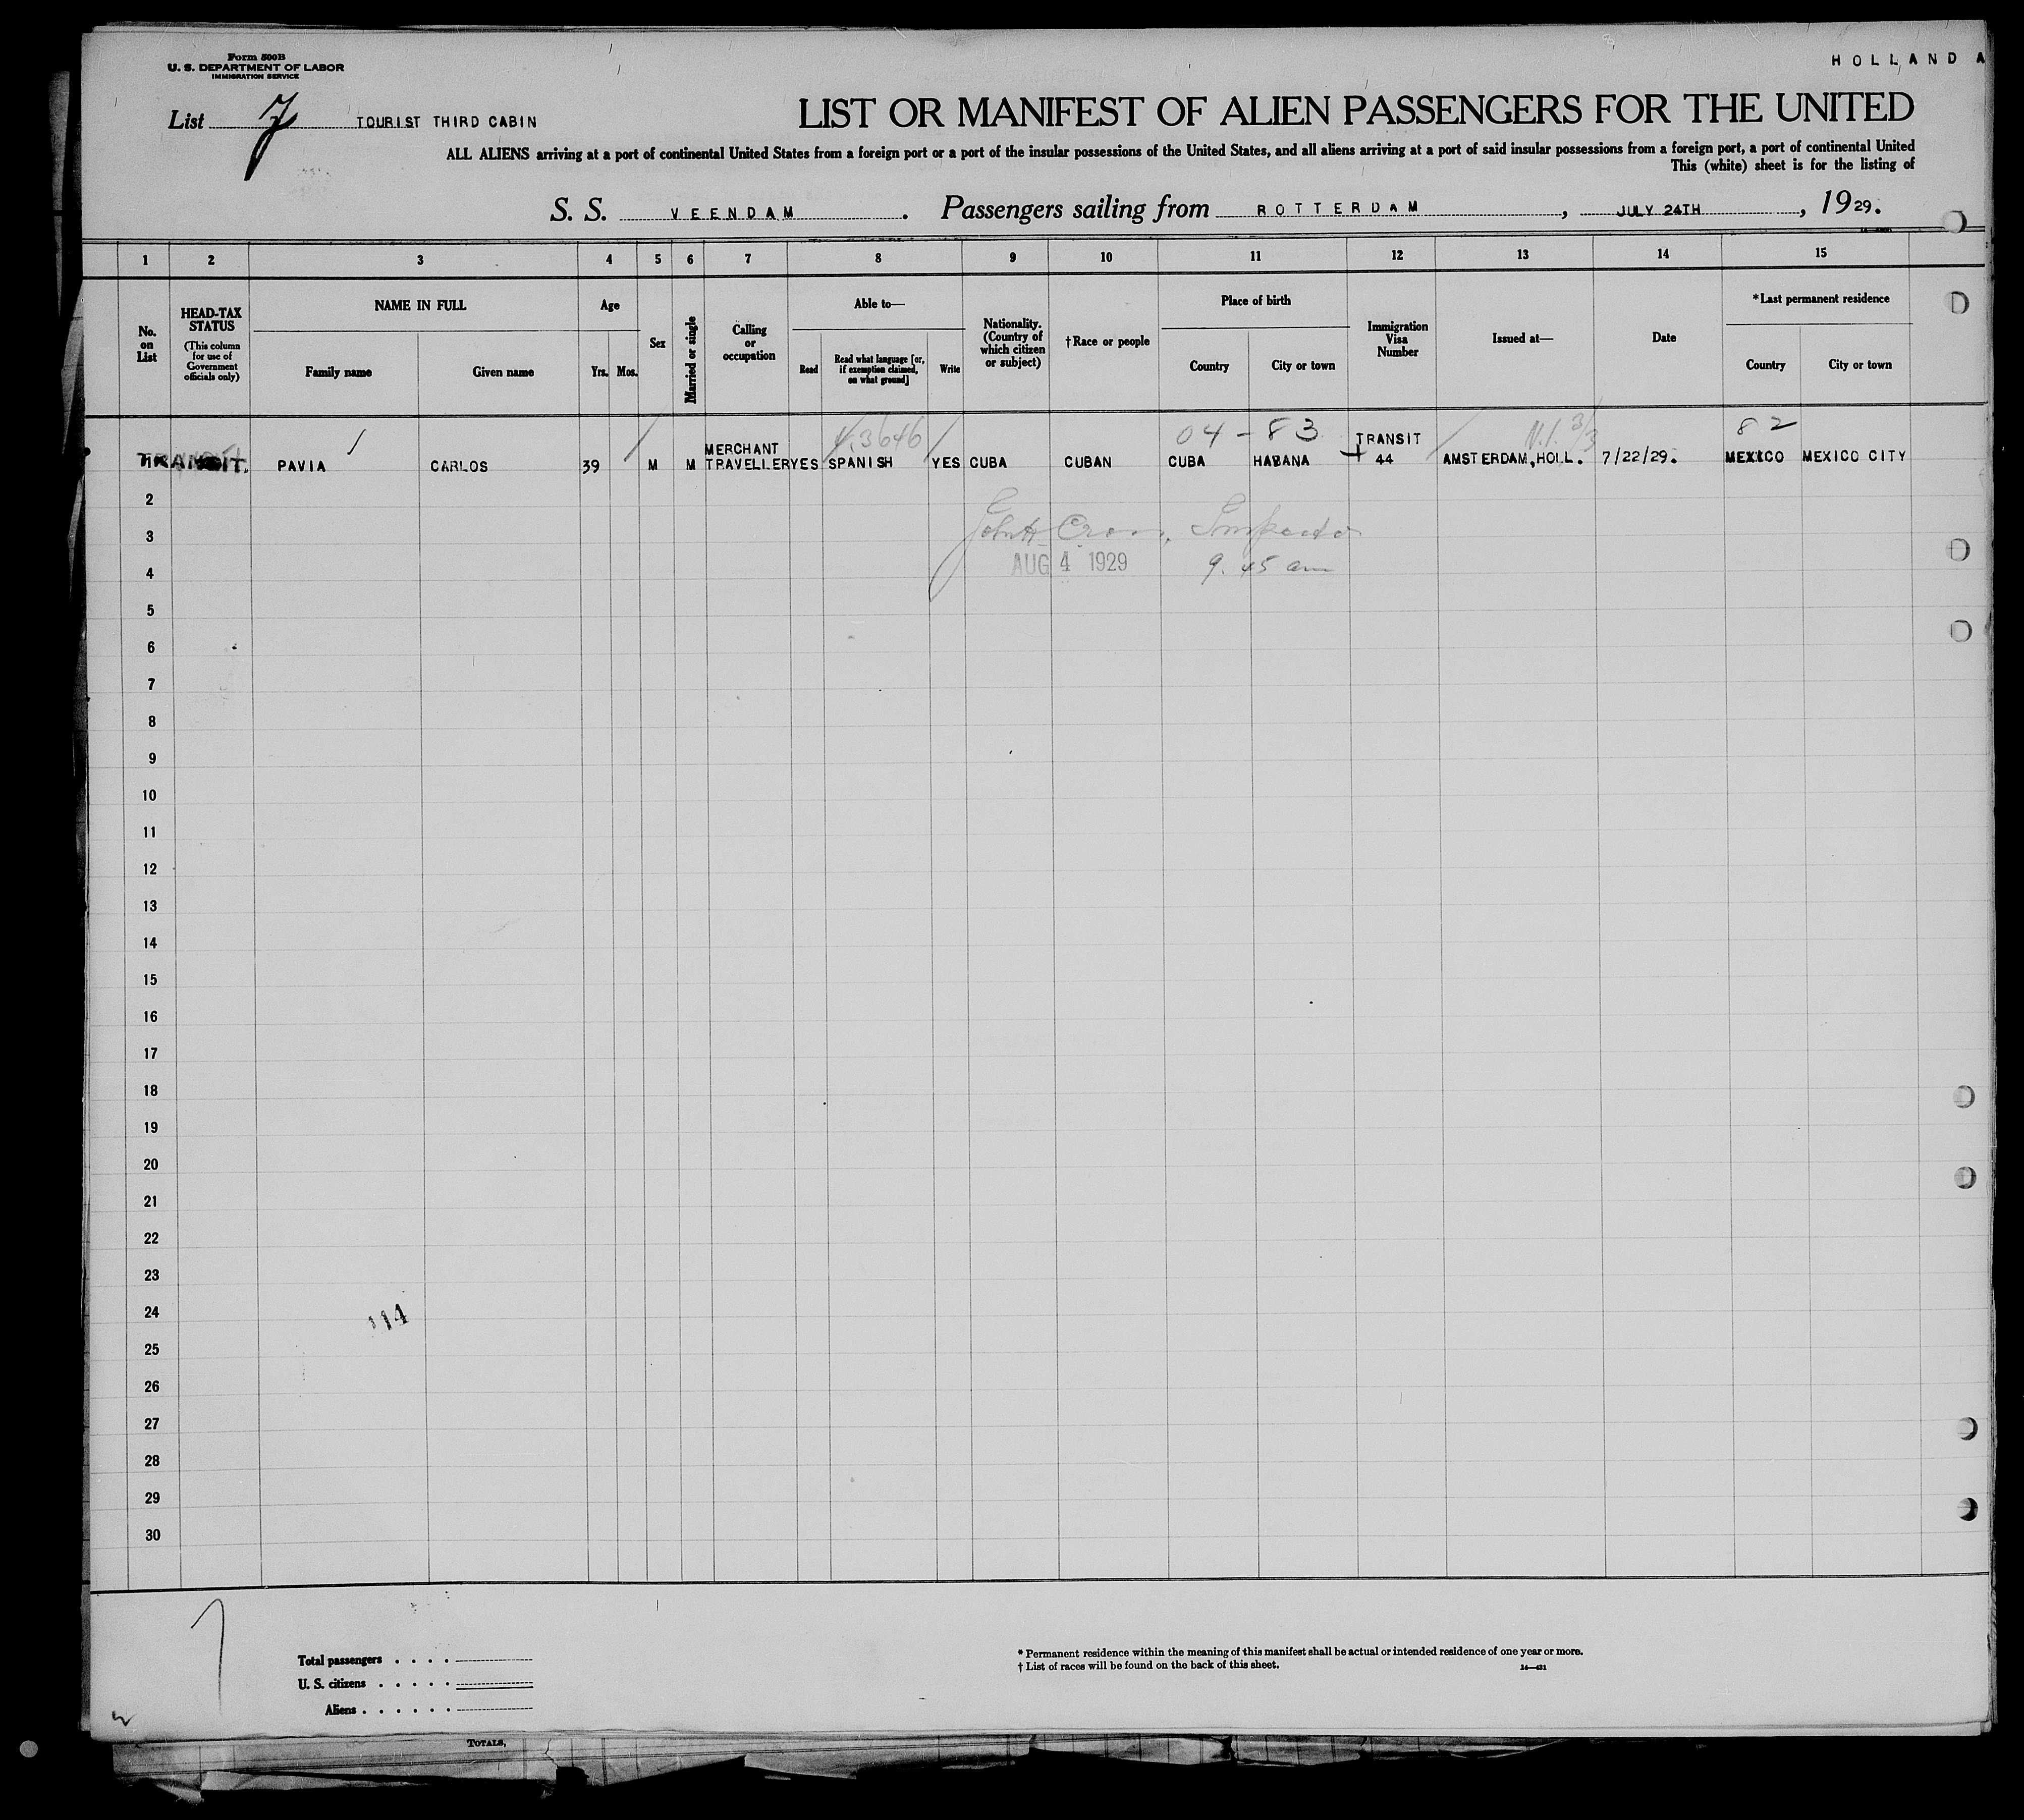 Form 500B
U. S. DEPARTMENT OF LABOR
IMMIGRATION SERVICE
HOLLAND A
List 7 TOURIST THIRD CABIN
LIST OR MANIFEST OF ALIEN PASSENGERS FOR THE UNITED
ALL ALIENS arriving at a port of continental United States from a foreign port or a port of the insular possessions of the United States, and all aliens arriving at a port of said insular possessions from a foreign port, a port of continental United
This (white) sheet is for the listing of
S. S. VEENDAM. Passengers sailing from ROTTERDAM, JULY 24TH, 1929.
1 2 3 4 5 6 7 8 9 10 11 12 13 14 15
No. on List
HEAD-TAX STATUS (This column for use of Government officials only)
NAME IN FULL
Family name Given name
Age
Yrs. Mos.
Sex
Married or single
Calling or occupation
Able to—
Read
Read what language [or, if exemption claimed, on what ground]
Write
Nationality. (Country of which citizen or subject)
†Race or people
Place of birth
Country City or town
Immigration Visa Number
Issued at—
Date
*Last permanent residence
Country City or town
04 - 83 82
MERCHANT TRANSIT
1 TRANSIT. PAVIA CARLOS 39 M M TRAVELLER YES SPANISH YES CUBA CUBAN CUBA HABANA 44 AMSTERDAM, HOLL. 7/22/29. MEXICO MEXICO CITY
2
3
AUG 4 1929 9.45 am
4
5
6
7
8
9
10
11
12
13
14
15
16
17
18
19
20
21
22
23
24
114
25
26
27
28
29
30
Total passengers
U. S. citizens
Aliens
* Permanent residence within the meaning of this manifest shall be actual or intended residence of one year or more.
† List of races will be found on the back of this sheet.
TOTALS,